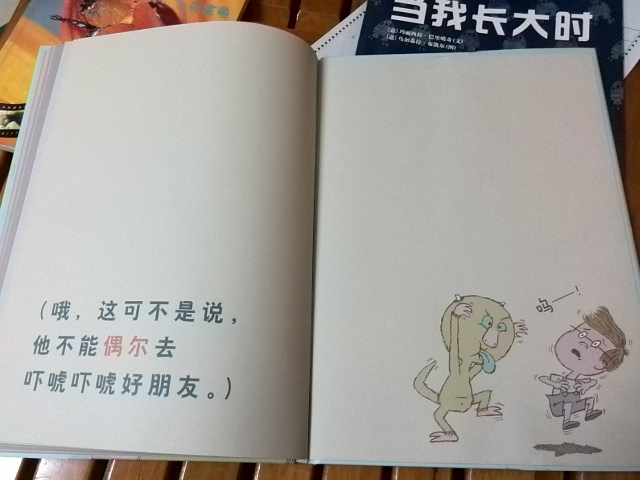 当我长大时
（哦，这可不是说，
他不能偶尔去
吓唬吓唬好朋友。）
呜——!